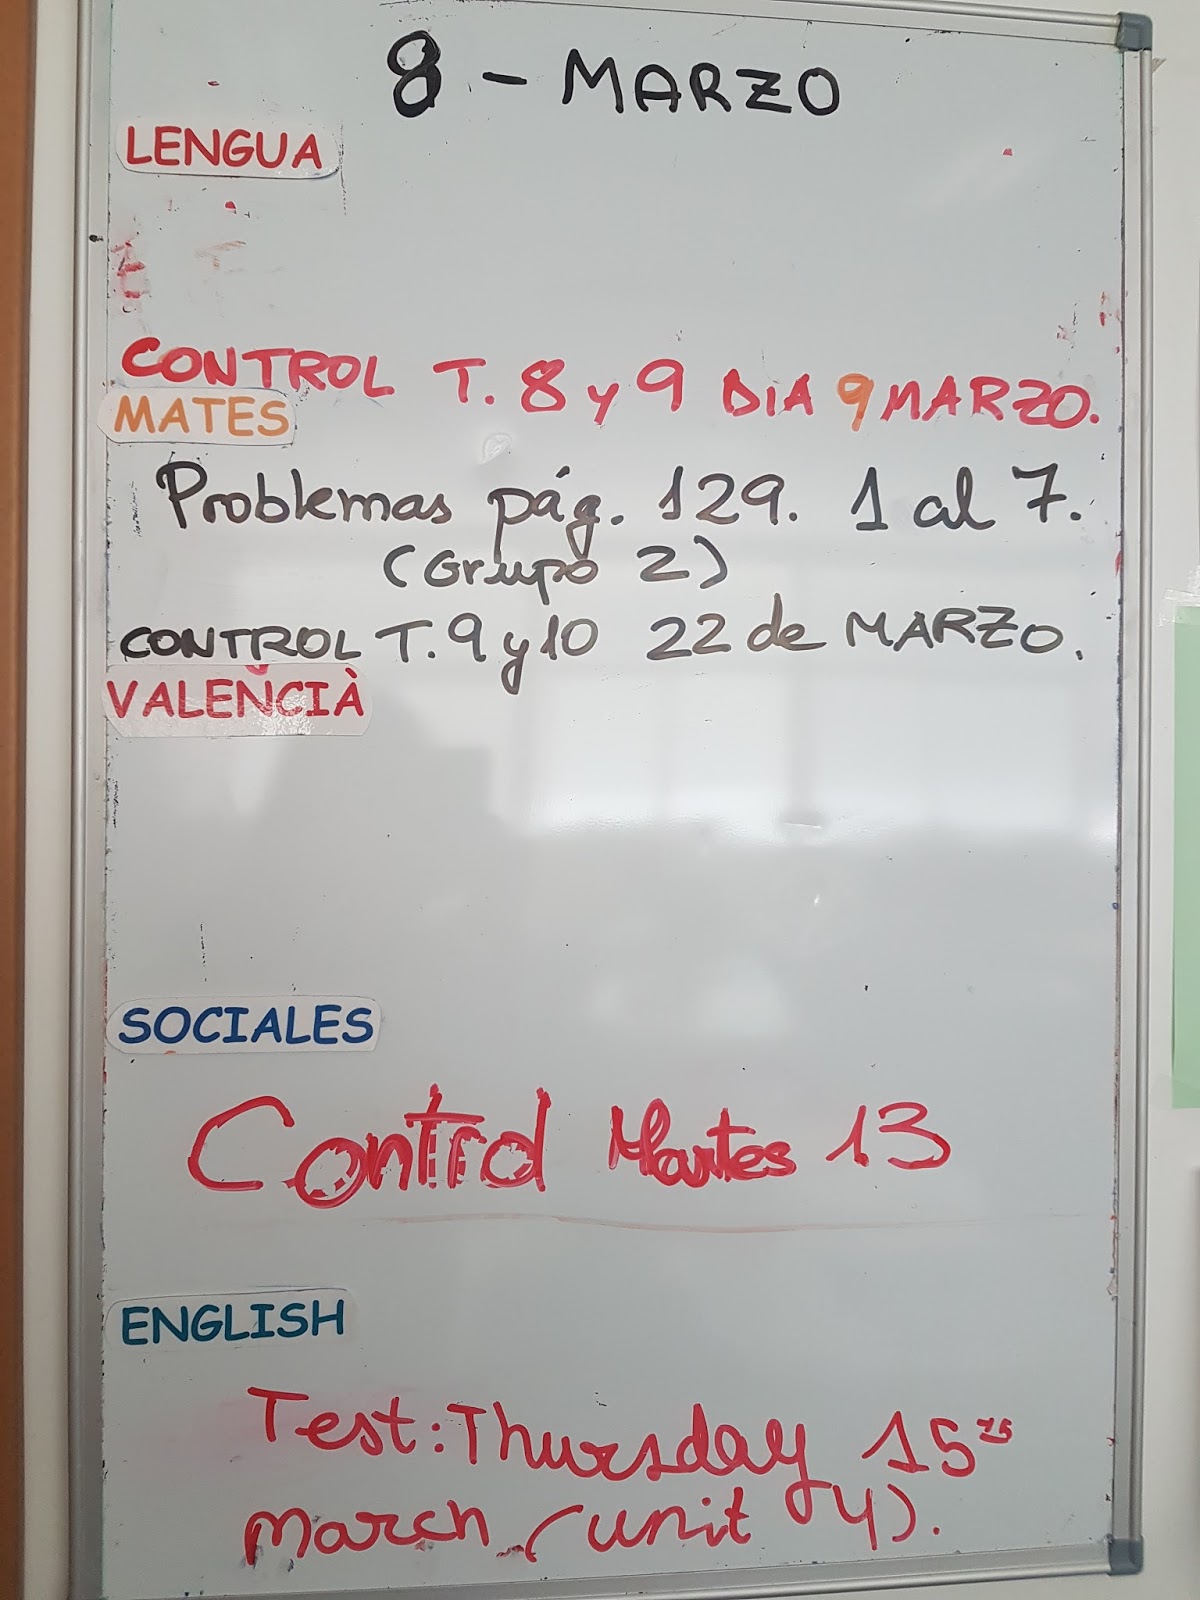 8 - MARZO
LENGUA
CONTROL T. 8 y 9 DIA 9 MARZO.
MATES
Problemas pág. 129. 1 al 7.
(Grupo 2)
CONTROL T. 9 y 10 22 de MARZO.
VALENCIÀ
SOCIALES
Control Martes 13
ENGLISH
Test: Thursday 15
march (unit 4).